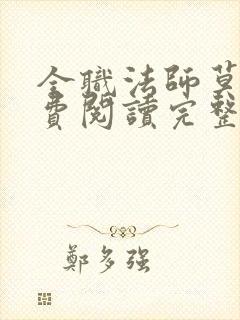 全職法師莫
費閱讀完整
鄭多強